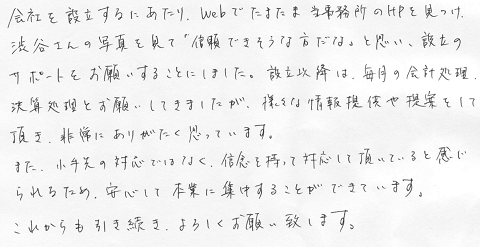 会社を設立するにあたり、Webでたまたま当事務所のHPを見つけ、
渋谷さんの写真を見て「信頼できそうな方だな」と思い、設立の
サポートをお願いすることにしました。設立以降は、毎月の会計処理、
決算処理とお願いしてきましたが、様々な情報提供や提案をして
頂き、非常にありがたく思っています。
また、小手先の対応ではなく、信念を持って対応して頂いていると感じ
られるため、安心して本業に集中することができています。
これからも引き続き、よろしくお願い致します。